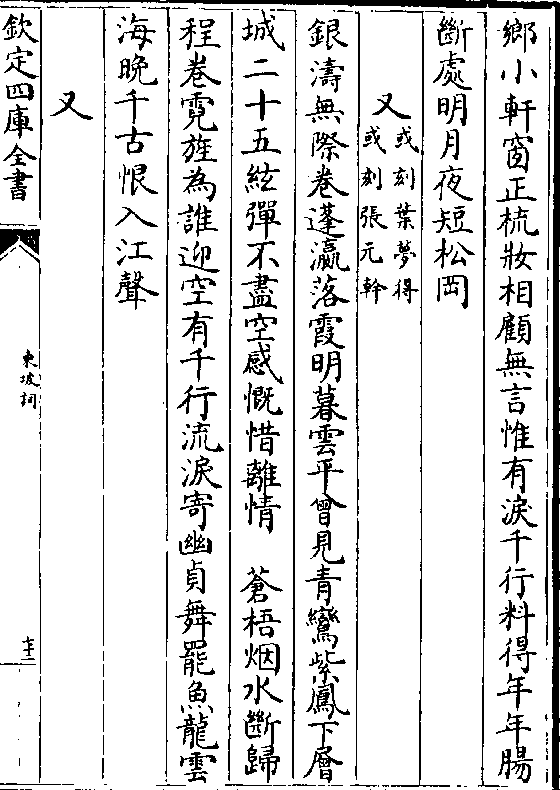 鄉小軒窗正梳妝相顧無言惟有淚千行料得年年腸
斷處明月夜短松岡
又 或刻葉夢得
或刻張元幹
銀濤無際卷蓬瀛落霞明暮雲平曾見青鸞紫鳳下層
城二十五絃彈不盡空感慨惜離情 蒼梧烟水斷歸
程卷霓旌為誰迎空有千行流淚寄幽貞舞罷魚龍雲
海晚千古恨入江聲
又
欽定四庫全書
東坡詞